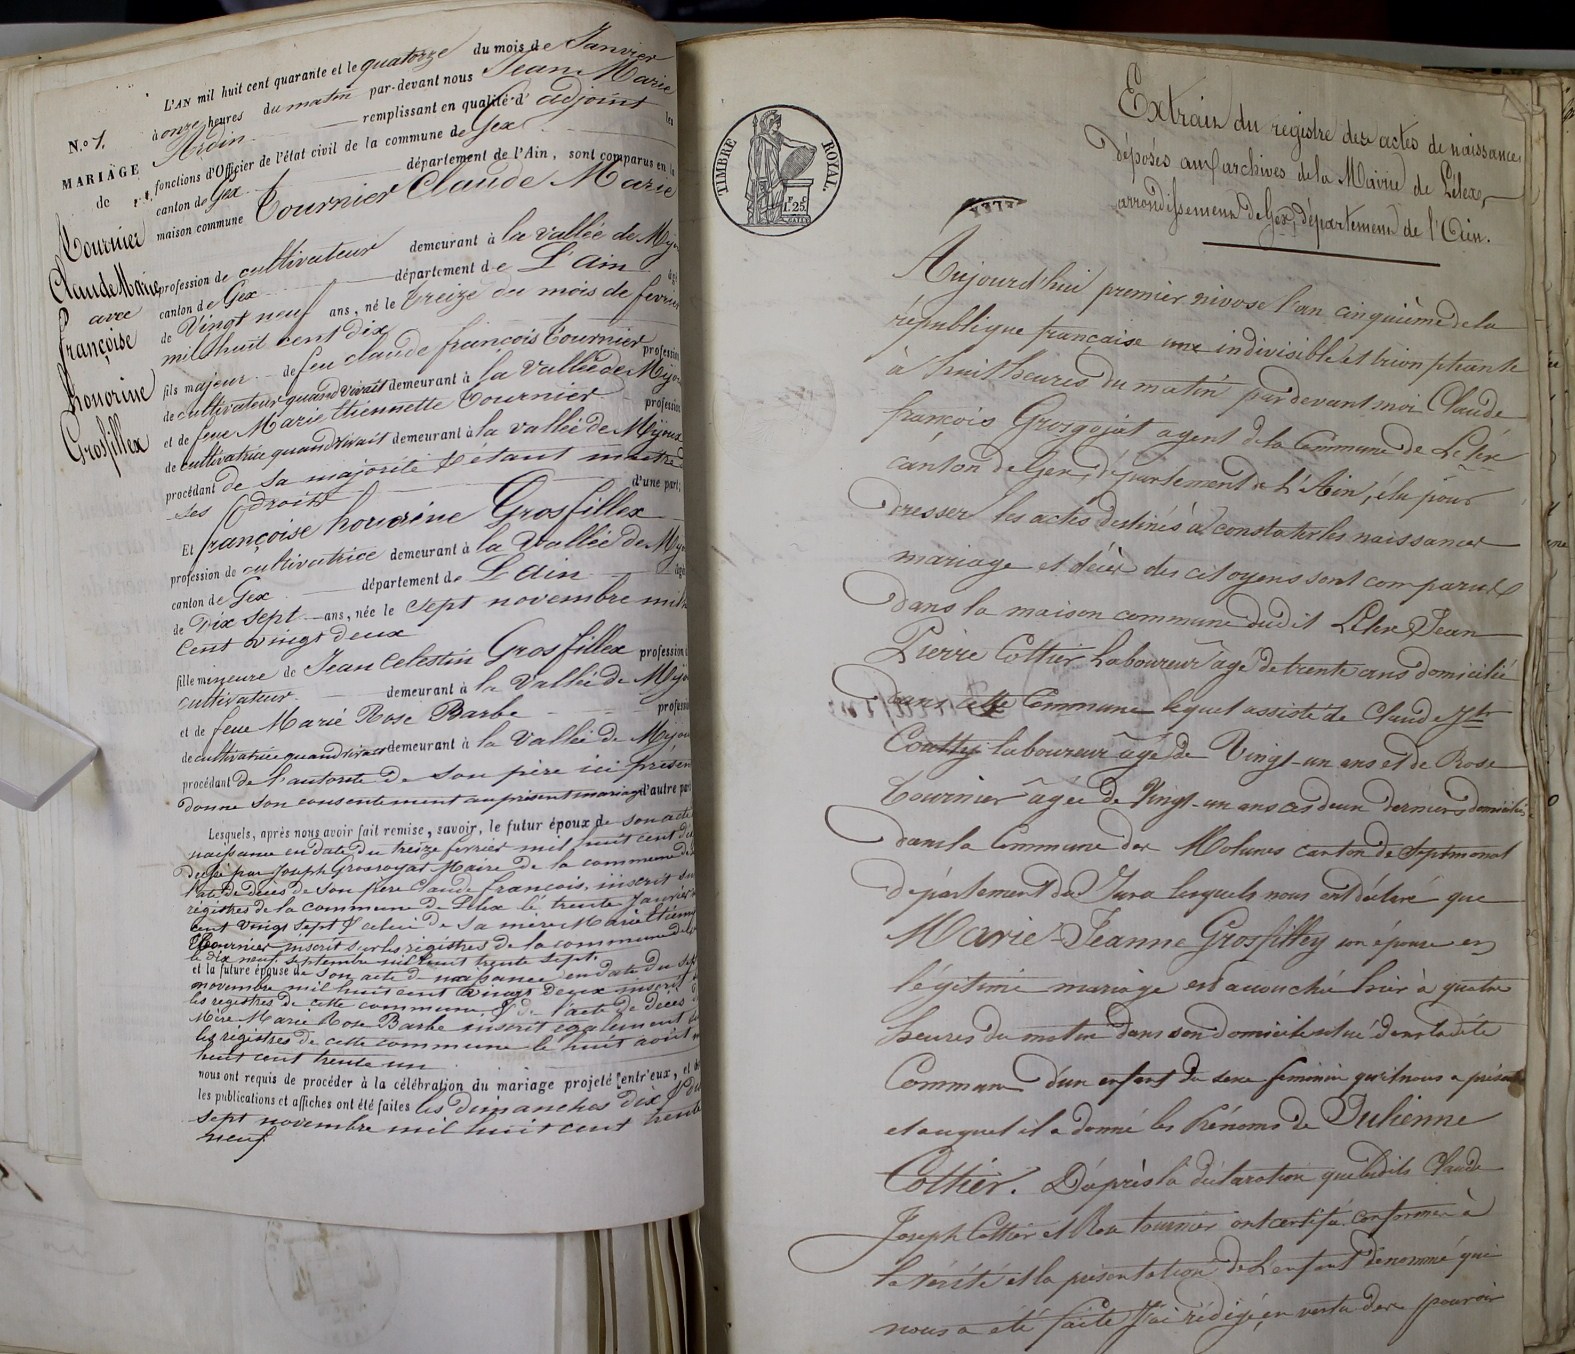 L'AN mil huit cent quarante et le quatorze du mois de Janvier
à onze heures du matin par-devant nous Jean Marie
Ardin remplissant en qualité d' adjoint les
fonctions d'Officier de l'état civil de la commune de Gex
canton de Gex département de l'Ain, sont comparus en la
maison commune Tournier Claude Marie
N.o 1.
MARIAGE
de
Tournier
Claude Marie
avec
françoise
honorine
Grosfillex
profession de cultivateur demeurant à la vallée de Mijou
canton de Gex département de L'Ain âgé
de Vingt neuf ans, né le treize du mois de fevrier
mil huit cent dix
fils majeur de feu claude françois Tournier profession
de cultivateur quand vivait demeurant à la Vallée de Mijou
et de feue Marie thiennette Tournier profession
de cultivatrice quand vivait demeurant à la vallée de Mijoux
procédant de sa majorité & étant maitre
ses droits d'une part;
Et françoise honorine Grosfillex
profession de cultivatrice demeurant à la Vallée de Mijo
canton de Gex département de L'ain âgé
de Dix sept ans, née le sept novembre mil
Cent vingt deux
fille mineure de Jean Celestin Grosfillex profession
cultivateur demeurant à la Vallée de Mijo
et de feue Marie Rose Barbe profession
de cultivatrice quand vivait demeurant à la Vallée de Mijou
procédant de l'autorité de son père ici présent
donne son consentement au présent mariage d'autre part
Lesquels, après nous avoir fait remise, savoir, le futur époux de son acte
naissance en date du treize fevrier mil huit cent dix
par Joseph Grosgojat Maire de la commune de
l'acte de décès de son père Claude françois, inscrit sur
régistres de la commune de Lélex le trente Janvier
cent vingt sept & celui de sa mère Marie thien
Tournier inscrit sur les régistres de la commune de
le dix neuf septembre mil huit trente sept.
et la future épouse de son acte de naissance en date du sept
novembre mil huit cent vingt deux inscrit
les régistres de cette commune, & de l'acte de décès
Mère Marie Rose Barbe inscrit également
les régistres de cette commune le huit août
huit cent trente un
nous ont requis de procéder à la célébration du mariage projeté entr'eux, et
les publications et affiches ont été faites les dimanches dix & dix
sept novembre mil huit cent trente
neuf
TIMBRE ROYAL.
L.25.
Extrait du registre des actes de naissances
déposés aux archives de la Mairie de Lélex,
arrondissement de Gex, département de l'Ain.
Aujourd'hui premier nivose l'an cinquième de la
république française une indivisible et trionphante
à huit heures du matin pardevant moi Claude
françois Grosgojat agent de la Commune de Lelex
canton de Gex, département de L'Ain, élu pour
dresser les actes destinés à constater les naissances
mariage et décès des citoyens sont comparus
dans la maison commune dudit Lelex Jean
Pierre Cottier Laboureur agé de trente ans domicilié
dans cette Commune lequel assisté de Claude Jh
Coutty laboureur agé de Vingt-un ans et de Rose
Tournier agée de Vingt-un ans ces deux derniers domiciliés
dans la Commune des Molunes canton de Septmoncel
département du Jura lesquels nous ont déclaré que
Marie-Jeanne Grosfilley son épouse en
légitime mariage est accouché hier à quatre
heures du matin dans son domicile situé dans ladite
Commune d'un enfant du sexe feminin qu'il nous a présenté
et auquel il a donné les Prénoms de Julienne
Cottier. D'après la déclaration que lesdits Claude
Joseph Cottier et Rose tournier ont certifié conforme à
la vérité et la présentation de L'enfant dénommé qui
nous a été faite J'ai rédigé, en vertu des pouvoir